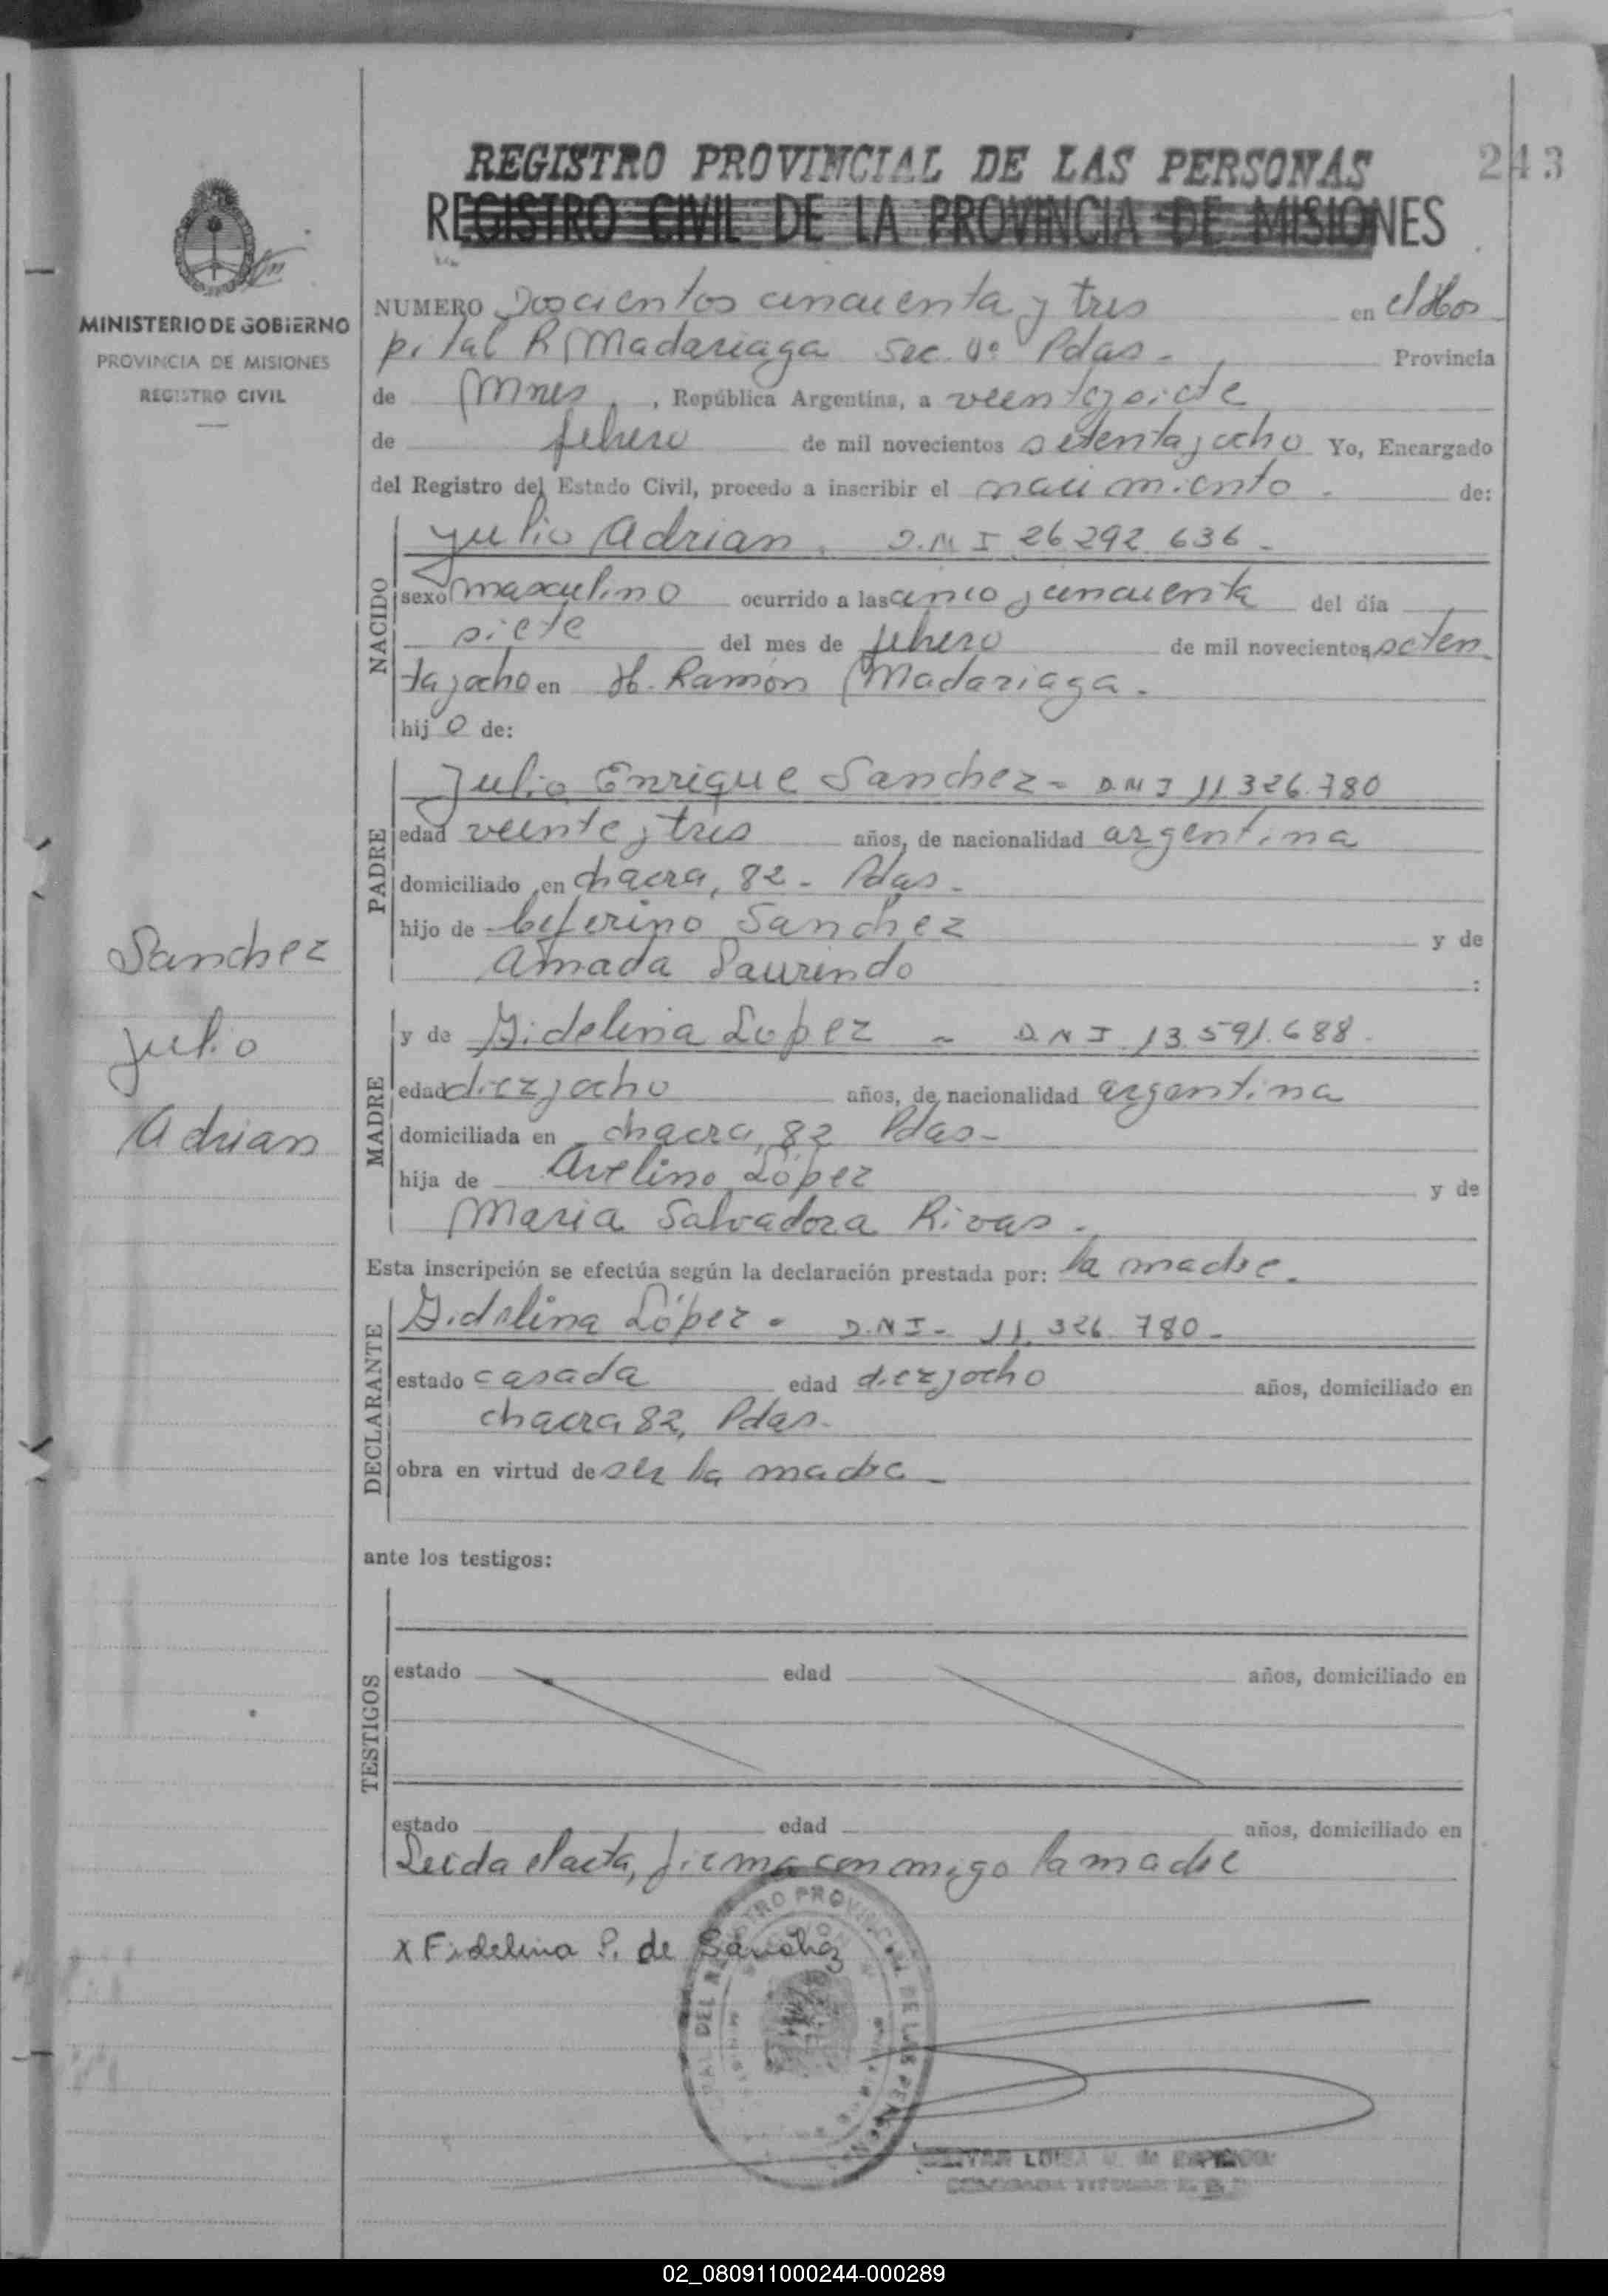 243
REGISTRO PROVINCIAL DE LAS PERSONAS
REGISTRO CIVIL DE LA PROVINCIA DE MISIONES
MINISTERIO DE GOBIERNO
PROVINCIA DE MISIONES
REGISTRO CIVIL
NUMERO Doscientos cincuenta y tres en el Hos
pital R Madariaga Sec. Pdas - Provincia
de Mnes , República Argentina, a veentysiete
de febrero de mil novecientos setentayocho Yo, Encargado
del Registro del Estado Civil, procedo a inscribir el nacimiento - de:
NACIDO
Julio Adrian. D.N I 26.292.636 -
sexo masculino ocurrido a las cinco y cincuenta del día
siete del mes de febrero de mil novecientos seten
tayocho en H. Ramón Madariaga.
hij o de:
PADRE
Julio Enrique Sanchez - D.N I 11.326.780
edad veinte y tres años, de nacionalidad argentina
domiciliado en chacra, 82 - Pdas -
hijo de Ceferino Sanchez y de
Amada :
Sanchez
Julio
Adrian
MADRE
y de Fidelina Lopez - D N I 13.591.688.
edad diezyocho años, de nacionalidad argentina
domiciliada en chacra, 82 Pdas -
hija de Avelino López y de
Maria Salvadora Rivas.
Esta inscripción se efectúa según la declaración prestada por: la madre.
DECLARANTE
Fidelina López - D.N I - 11.326.780 -
estado casada edad diezyocho años, domiciliado en
chacra 82, Pdas.
obra en virtud de ser la madre -
ante los testigos:
TESTIGOS
estado edad años, domiciliado en
estado edad años, domiciliado en
Leida el acta, firma conmigo la madre
x Fidelina P. de Sanchez
02_080911000244-000289